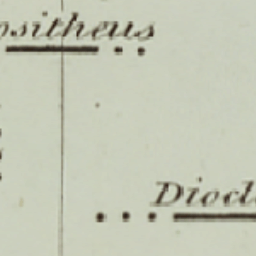 ositheus
Diocl